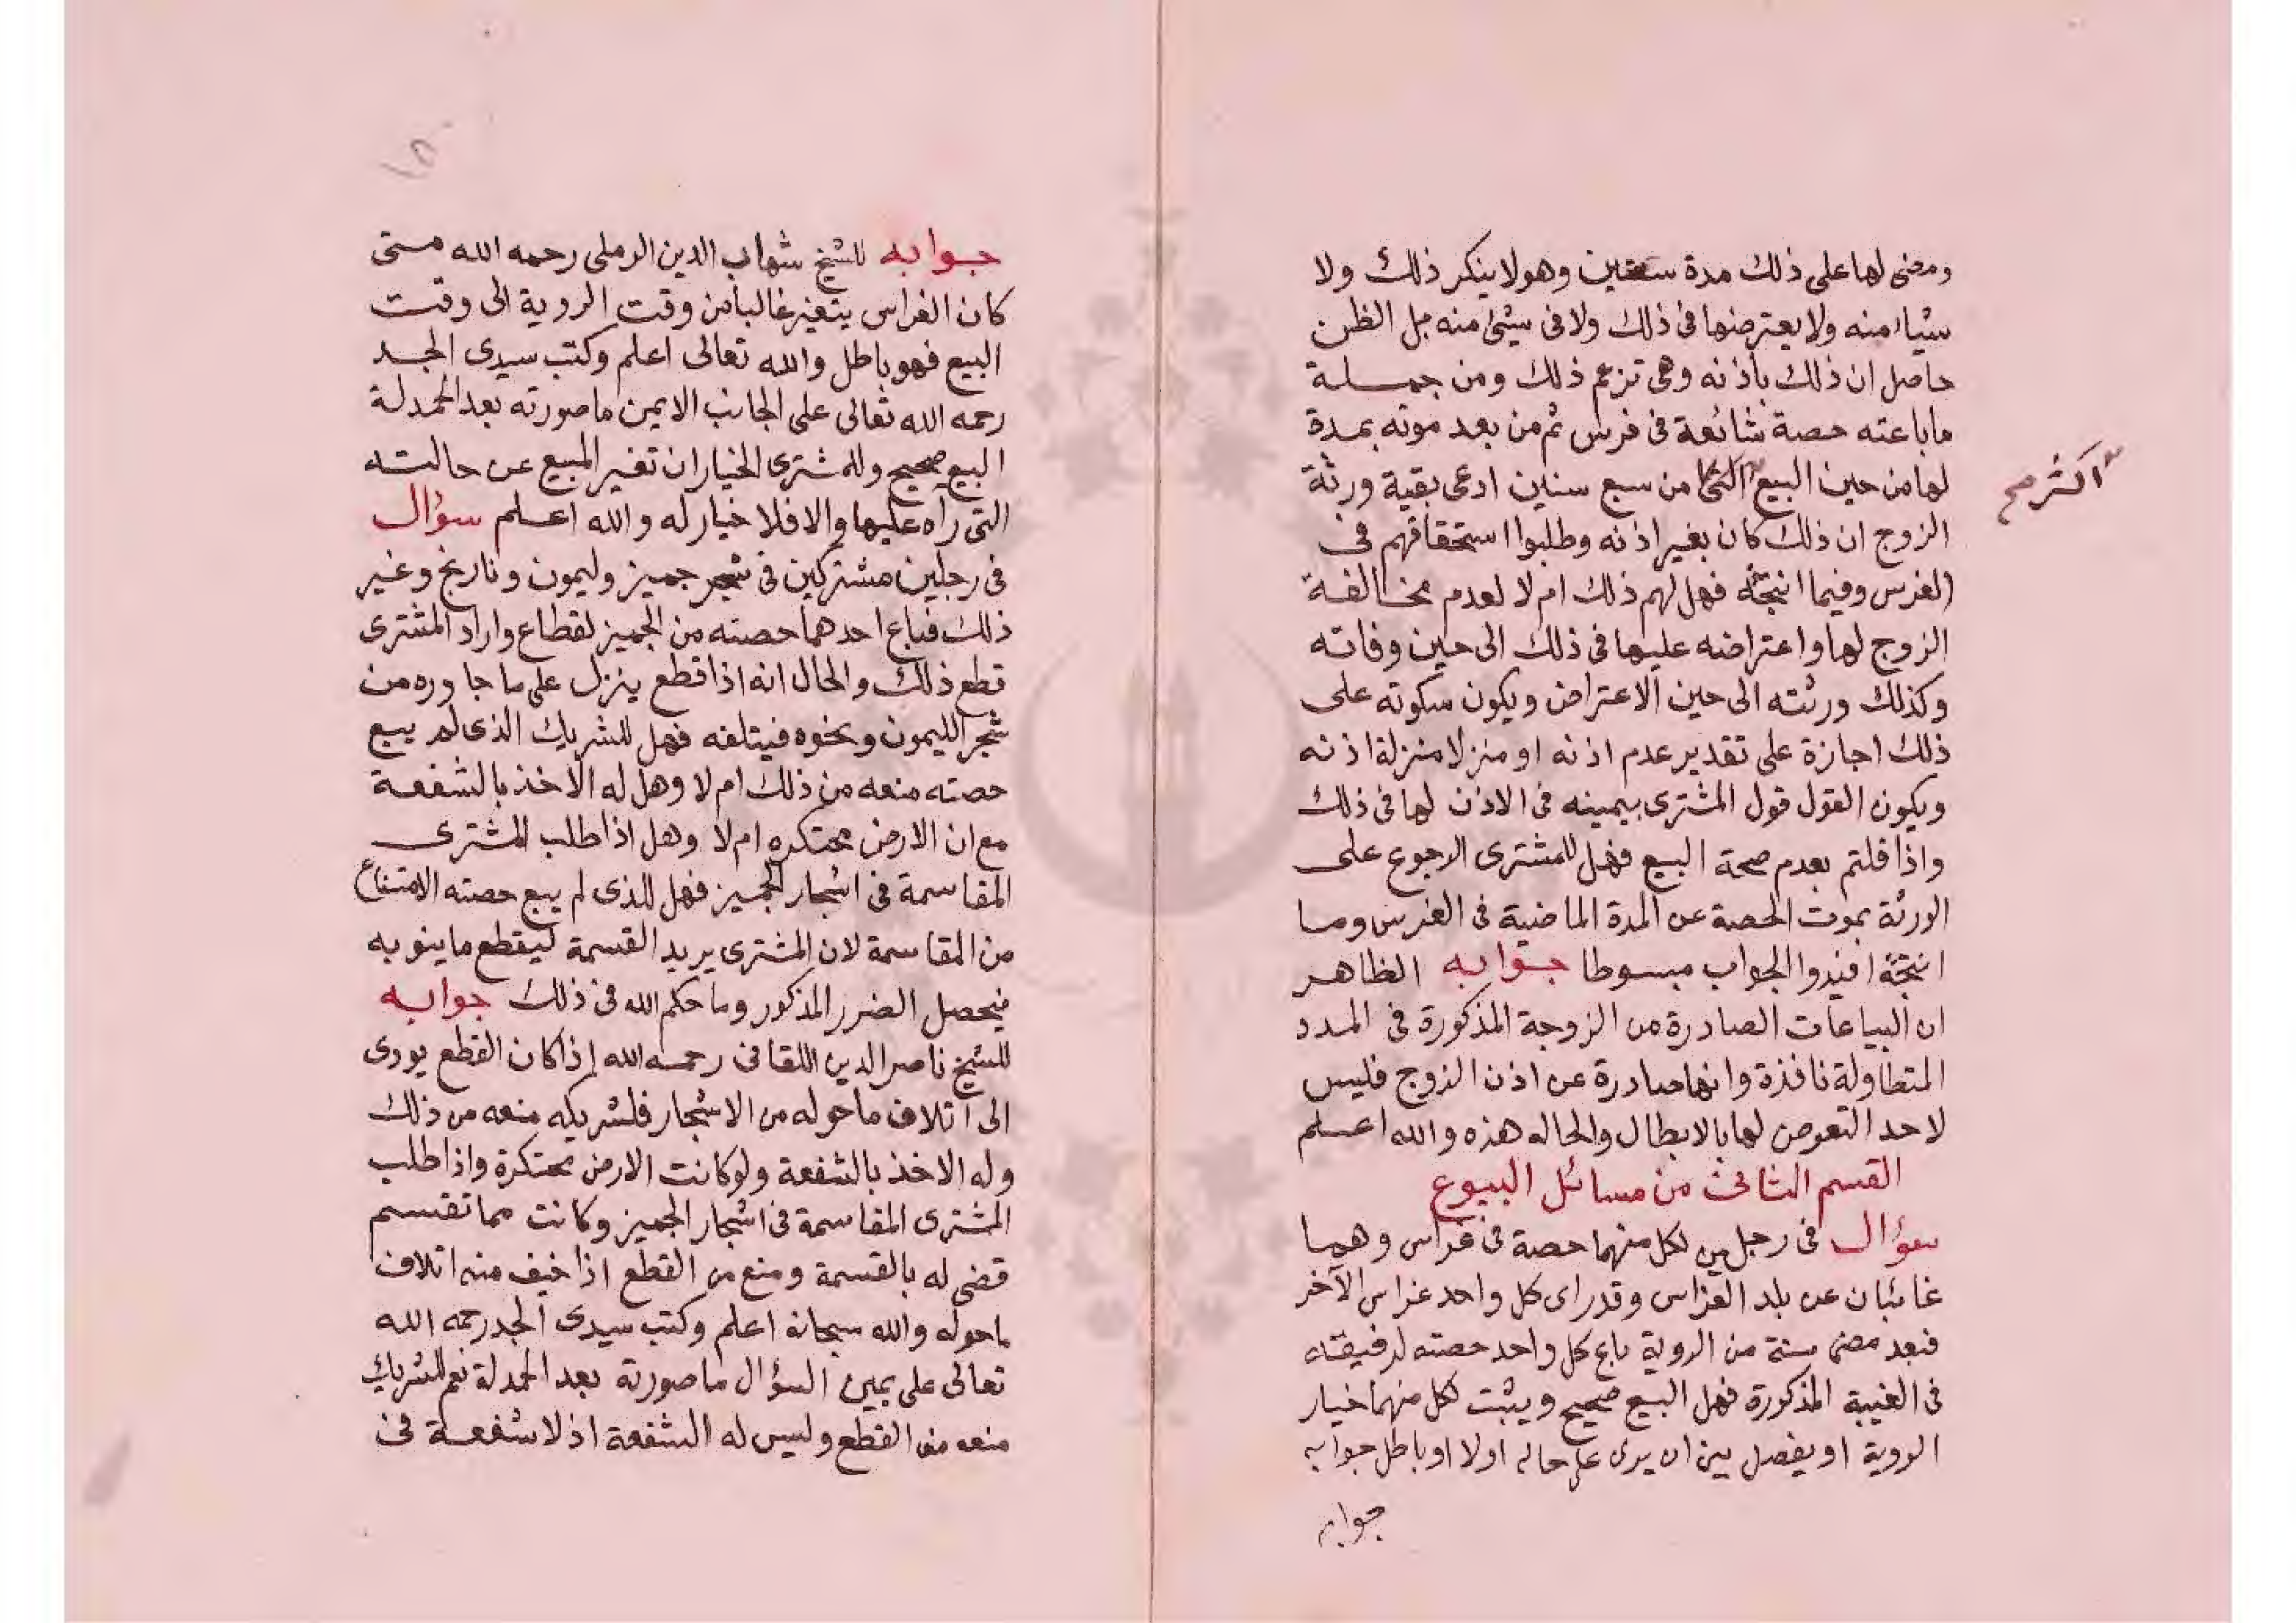 ومضى لها على ذلك مدة سنتين وهو لا ينكر ذلك ولا
شياء منه ولا يعترضها فى ذلك ولا فى شئ منه بل الظن
حاصل ان ذلك باذنه وهى تزعم ذلك ومن جملة
ما باعته حصة شائعة فى فرس ثم من بعد موته بمدة
لها من حين البيع من سبع سنين ادعى بقية ورثة
اكثر صح
الزوج ان ذلك كان بغير اذنه وطلبوا استحقاقهم فى
الفرس وفيما انتجته فهل لهم ذلك ام لا لعدم مخالفة
الزوج لها واعتراضه عليها فى ذلك الى حين وفاته
وكذلك ورثته الى حين الاعتراض ويكون سكوته على
ذلك اجازة على تقدير عدم اذنه او منزلا منزلة اذنه
ويكون القول قول المشترى بيمينه فى الاذن لها فى ذلك
واذا قلتم بعدم صحة البيع فهل للمشترى الرجوع على
الورثة بموت الحصة عن المدة الماضية فى الفرس وما
انتجته افيدوا الجواب مبسوطا جوابه الظاهر
ان البياعات الصادرة من الزوجة المذكورة فى المدد
المتطاولة نافذة وانها صادرة عن اذن الزوج فليس
لاحد التعرض لها بالابطال والحاله هذه والله اعلم
القسم الثانى من مسائل البيوع
سؤال فى رجلين لكل منهما حصة فى غراس وهما
غائبان عن بلد الغراس وقد راى كل واحد غراس الآخر
فبعد مضى سنة من الروية باع كل واحد حصته لرفيقه
فى الغيبة المذكورة فهل البيع صحيح ويثبت لكل منهما خيار
الروية او يفصل بين ان يرى على حاله اولا او باطل جوابه
جوابه
١٥
جوابه للشيخ شهاب الدين الرملى رحمه الله متى
كان الغراس يتغير غالبا من وقت الروية الى وقت
البيع فهو باطل والله تعالى اعلم وكتب سيدى الجد
رحمه الله تعالى على الجانب الايمن ما صورته بعد الحمدلة
البيع صحيح وللمشترى الخيار ان تغير المبيع عن حالته
التى رآه عليها والا فلا خيار له والله اعلم سؤال
فى رجلين مشتركين فى شجر جميز وليمون ونارنج وغير
ذلك فباع احدهما حصته من الجميز لقطاع واراد المشترى
قطع ذلك والحال انه اذا قطع ينزل على ما جاوره من
شجر الليمون ونحوه فيتلفه فهل للشريك الذى لم يبع
حصته منعه من ذلك ام لا وهل له الاخذ بالشفعة
مع ان الارض محتكره ام لا وهل اذا طلب المشترى
المقاسمة فى اشجار الجميز فهل للذى لم يبع حصته الامتناع
من المقاسمة لان المشترى يريد القسمة ليقطع ما ينوبه
فيحصل الضرر المذكور وما حكم الله فى ذلك جوابه
للشيخ ناصر الدين اللقانى رحمه الله اذا كان القطع يودى
الى اتلاف ما حوله من الاشجار فلشريكه منعه من ذلك
وله الاخذ بالشفعة ولو كانت الارض محتكرة واذا طلب
المشترى المقاسمة فى اشجار الجميز وكانت مما تقسم
قضى له بالقسمة ومنع من القطع اذا خيف منه اتلاف
ماحوله والله سبحانه اعلم وكتب سيدى الجد رحمه الله
تعالى على يمين السؤال ما صورته بعد الحمدلة نعم للشريك
منعه من القطع وليس له الشفعة اذ لا شفعة فى